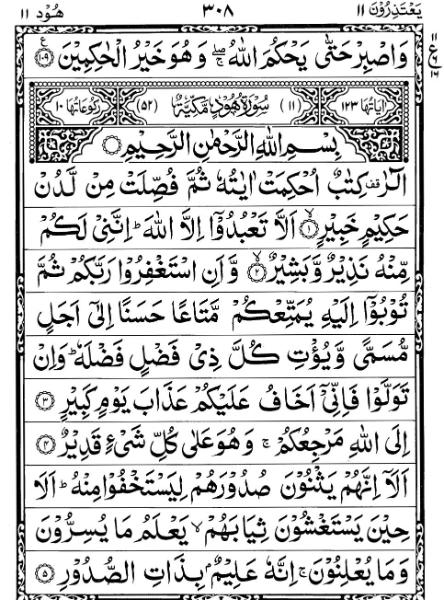 يَعْتَذِرُوْنَ ١١ ٣٠٨ هُوْد ١١
وَاصْبِرْ حَتّٰى يَحْكُمَ اللّٰهُ ۚ وَهُوَ خَيْرُ الْحٰكِمِيْنَ ﴿١٠٩﴾
اٰيَاتُهَا ١٢٣ (١١) سُوْرَةُ هُوْدٍ مَكِّيَّةٌ (٥٢) رُكُوْعَاتُهَا ١٠
بِسْمِ اللّٰهِ الرَّحْمٰنِ الرَّحِيْمِ
الٓرٰ ۟ كِتٰبٌ اُحْكِمَتْ اٰيٰتُهٗ ثُمَّ فُصِّلَتْ مِنْ لَّدُنْ
حَكِيْمٍ خَبِيْرٍ ﴿١﴾ اَلَّا تَعْبُدُوْۤا اِلَّا اللّٰهَ ؕ اِنَّنِيْ لَكُمْ
مِّنْهُ نَذِيْرٌ وَّبَشِيْرٌ ﴿٢﴾ وَّاَنِ اسْتَغْفِرُوْا رَبَّكُمْ ثُمَّ
تُوْبُوْۤا اِلَيْهِ يُمَتِّعْكُمْ مَّتَاعًا حَسَنًا اِلٰۤى اَجَلٍ
مُّسَمًّى وَّيُؤْتِ كُلَّ ذِيْ فَضْلٍ فَضْلَهٗ ؕ وَاِنْ
تَوَلَّوْا فَاِنِّيْۤ اَخَافُ عَلَيْكُمْ عَذَابَ يَوْمٍ كَبِيْرٍ ﴿٣﴾
اِلَى اللّٰهِ مَرْجِعُكُمْ ۚ وَهُوَ عَلٰى كُلِّ شَيْءٍ قَدِيْرٌ ﴿٤﴾
اَلَاۤ اِنَّهُمْ يَثْنُوْنَ صُدُوْرَهُمْ لِيَسْتَخْفُوْا مِنْهُ ؕ اَلَا
حِيْنَ يَسْتَغْشُوْنَ ثِيَابَهُمْ ۙ يَعْلَمُ مَا يُسِرُّوْنَ
وَمَا يُعْلِنُوْنَ ۚ اِنَّهٗ عَلِيْمٌۢ بِذَاتِ الصُّدُوْرِ ﴿٥﴾